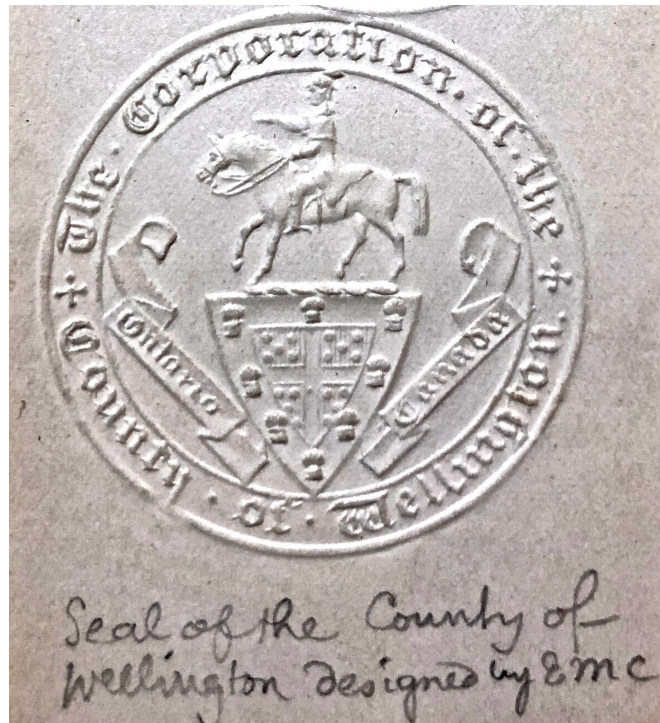 The · Corporation · of · the
County · of · Wellington ·
Ontario
Canada
Seal of the County of
Wellington designed by EMC